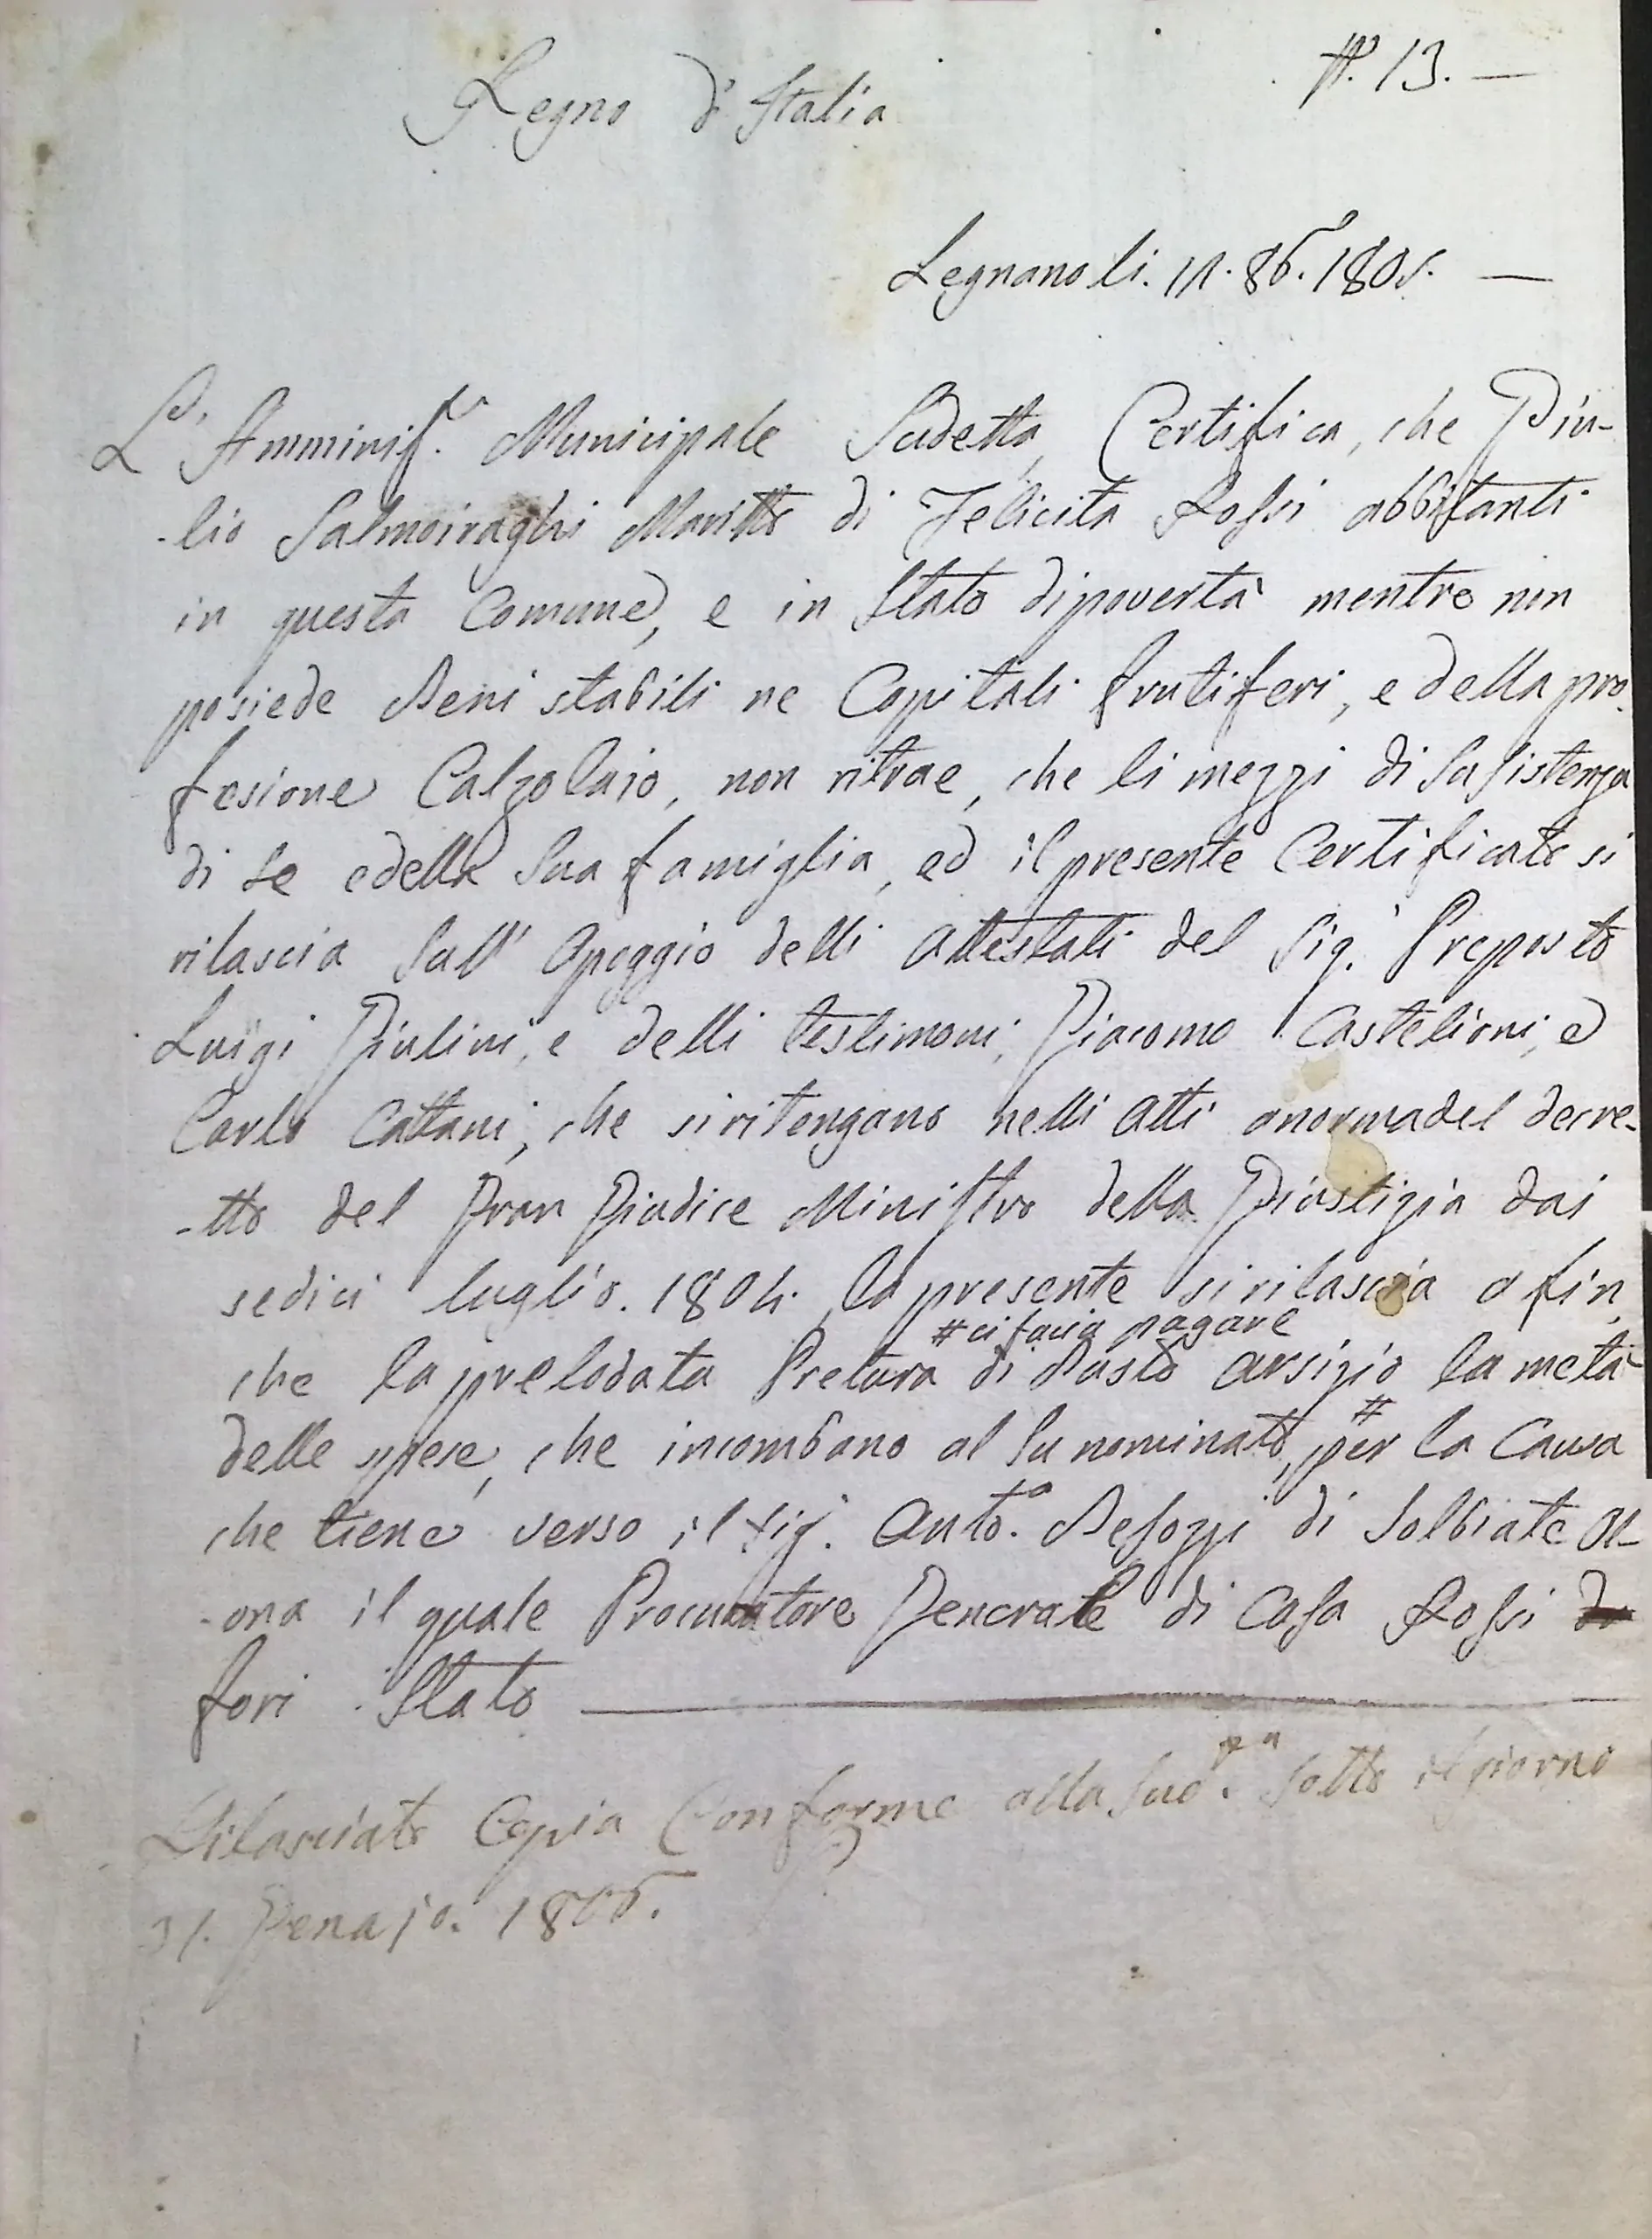 N. 13. —
Regno d'Italia
Legnano li. 11. 8b.e 1805. —
L'Amminis.e Municipale Sudetta, Certifica, che Giu-
-lio Salmoiraghi Maritto di Felicita Rossi abbitanti
in questa Comune, e in Stato dipovertà mentre non
posiede Beni stabili ne Capitali frutiferi, e della pro
fesione Calzolaio, non ritrae, che li mezzi di Susistenza
di Se edella Sua famiglia, ed il presente Certificato si
rilascia Sull' Apoggio delli Attestati del Sig.r Preposto
Luigi Giulini, e delli testimoni, Giacomo Castelioni, e
Carlo Cattani, che siritengano nelli Atti anormadel decre-
-tto del Gran Giudice Ministro della Giustizia dai
sedici luglio. 1804. la presente sirilascia a fin,
# ci facia pagare
che la prelodata Pretura di Busto Arsizio la metà
delle spese, che incombano al Sunominato, # per la Causa
che tiene verso il Sig.r Anto.o Besozzi di Solbiate Ol-
-ona il quale Procuratore Generale di Casa Rossi
fori Stato
Rilasciato Copia Conforme alla Sud.a Sotto il giorno
31. Genajo. 1806.